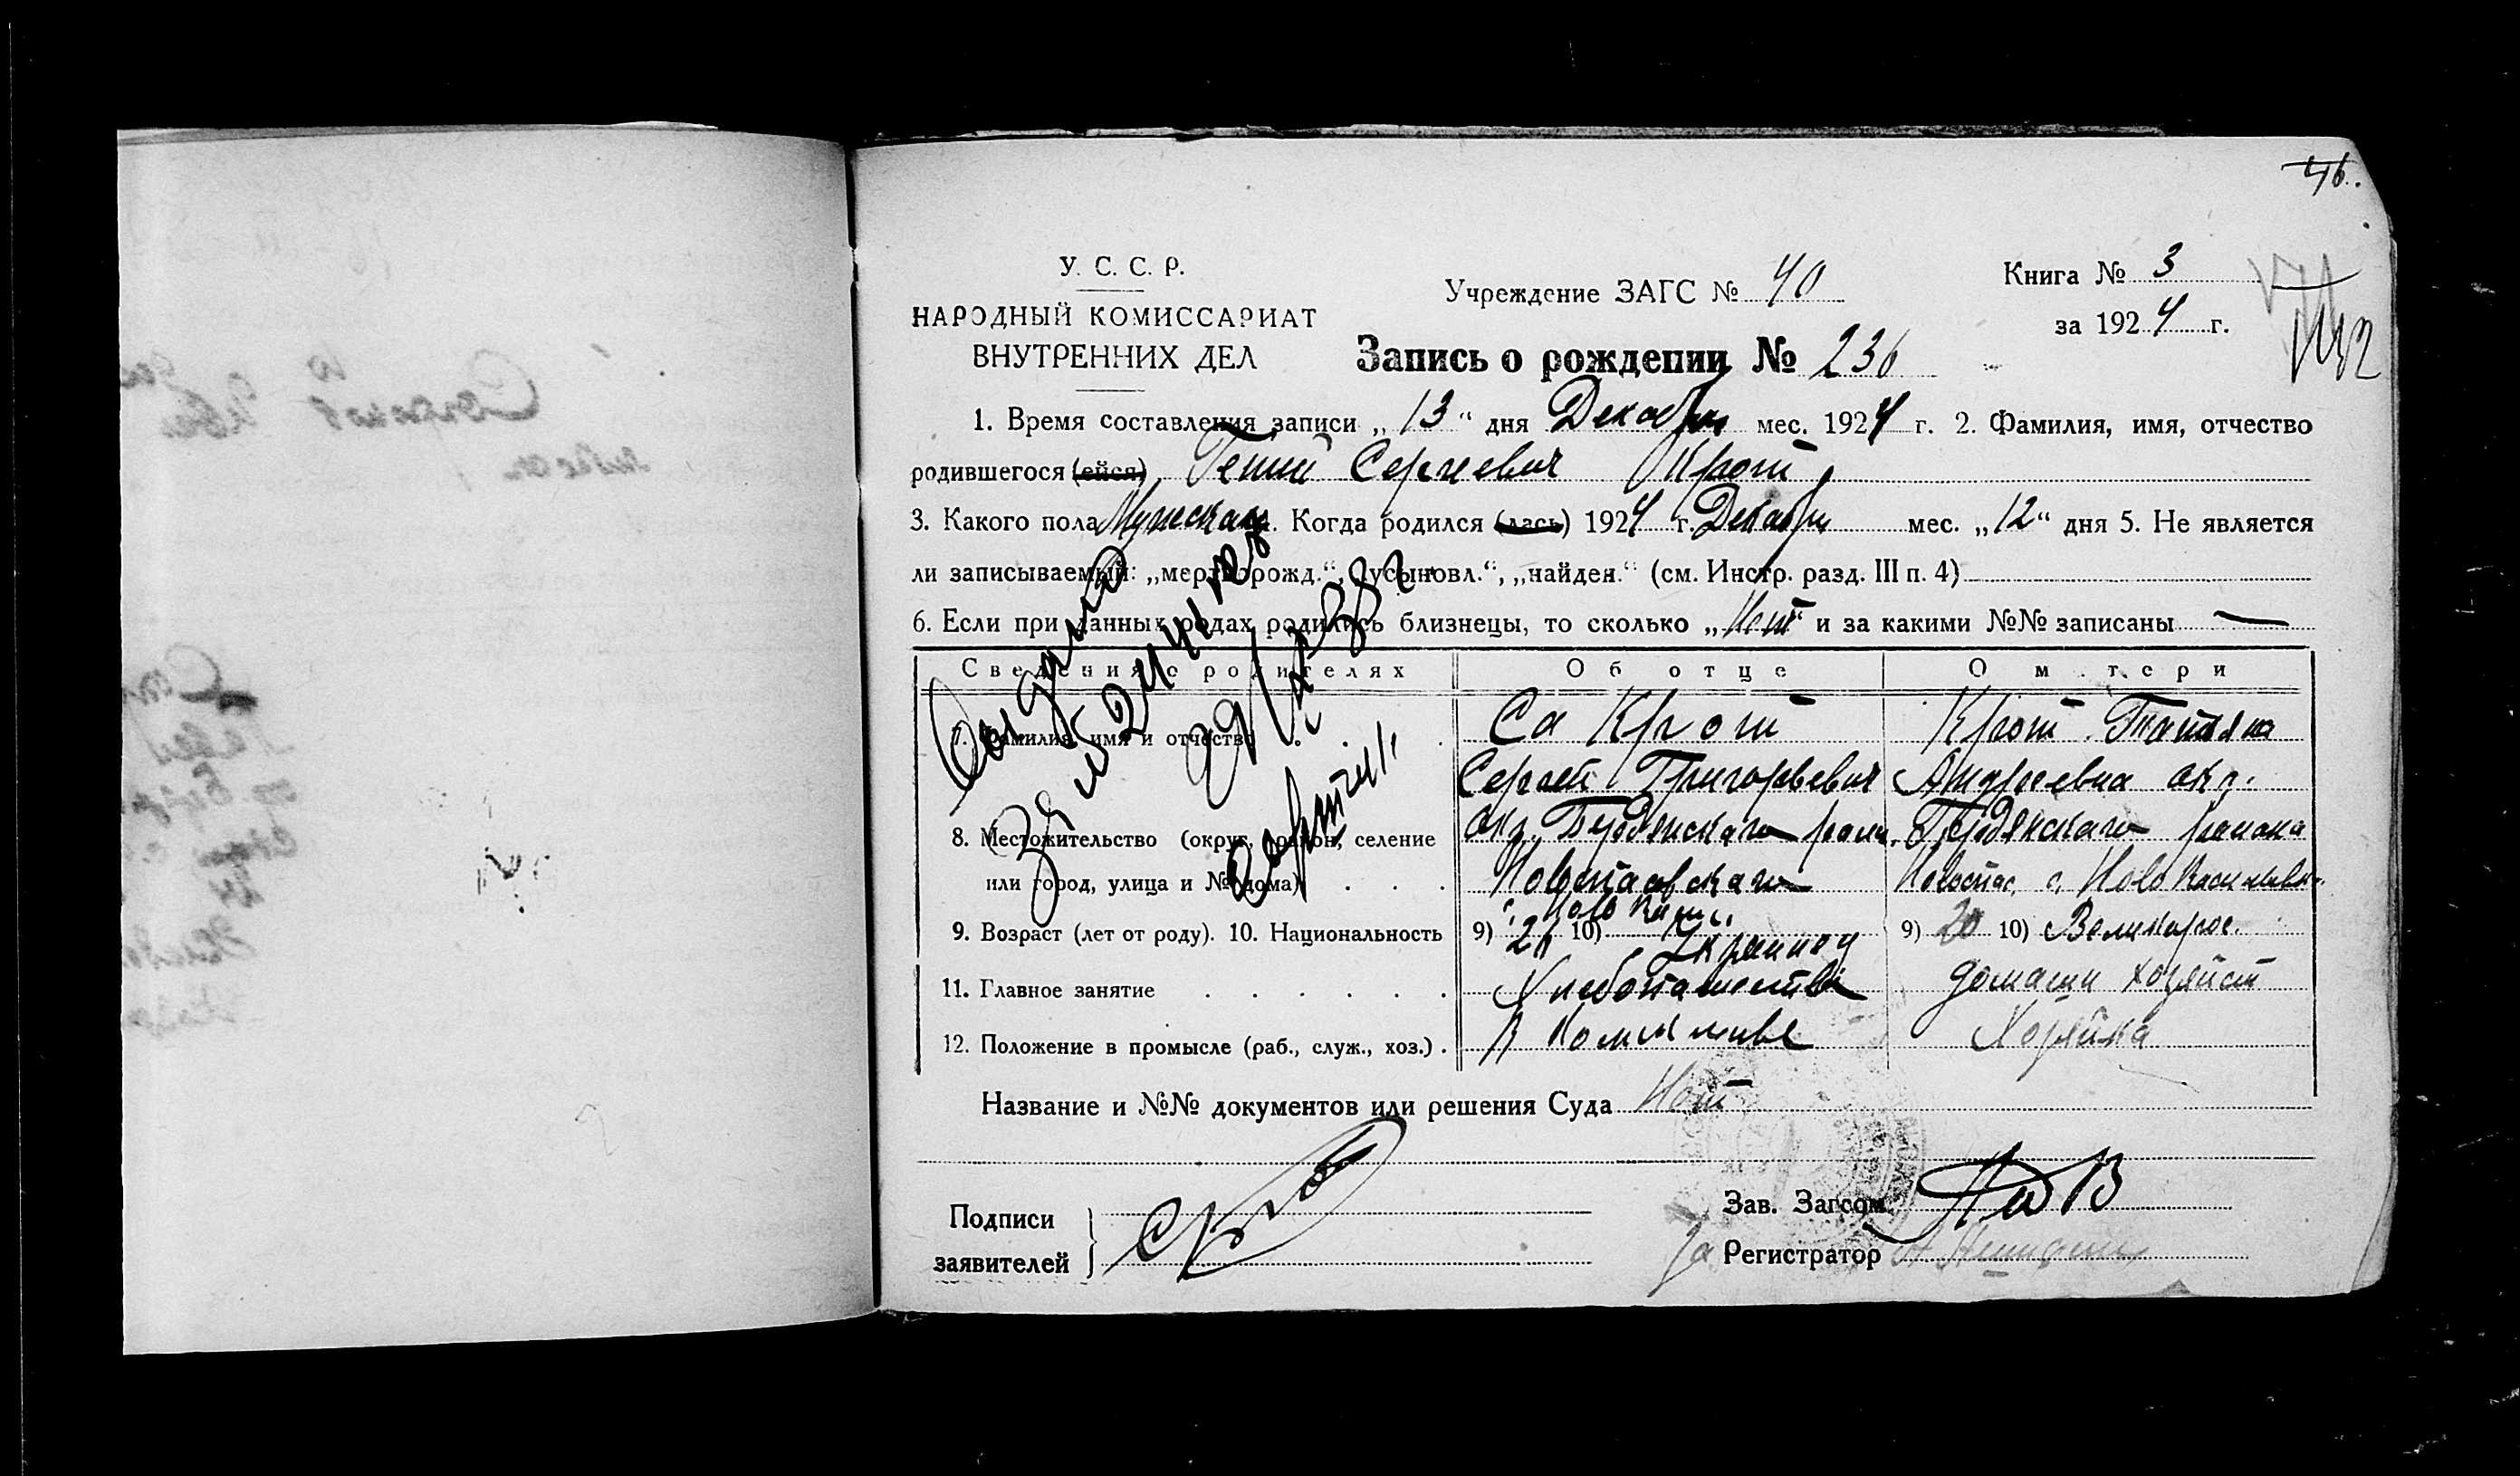 46.
У. С. С. Р.
НАРОДНЫЙ КОМИССАРИАТ
ВНУТРЕННИХ ДЕЛ
Учреждение ЗАГС № 40
Книга № 3
за 1924 г.
Запись о рождении № 236
1. Время составления записи „13“ дня Декабря мес. 1924 г. 2. Фамилия, имя, отчество
родившегося (ейся) Гений Сергеевич Крот
3. Какого пола Мужскаго. Когда родился (лась) 1924 г. Декабря мес. „12“ дня 5. Не является
ли записываемый: „мертворожд.“, „усыновл.“, „найден.“ (см. Инстр. разд. III п. 4)
6. Если при данных родах родились близнецы, то сколько „Нет“ и за какими №№ записаны —
Сведения о родителях Об отце О матери
7. Фамилия, имя и отчество Крот Крот Татьяна
Сергей Григорьевич Андреевна окр.
8. Местожительство (округ, район, селение окр. Бердянскаго Бердянскаго района
или город, улица и № дома) Новоспасскаго Новоспас. с. Ново
9. Возраст (лет от роду). 10. Национальность 9) 26 10) Украинец 9) 20 10) Великорос.
11. Главное занятие Хлебопашество домашн хозяйст
12. Положение в промысле (раб., служ., хоз.) Хозяйка
Название и №№ документов или решения Суда Нет
Подписи
заявителей
Зав. Загсом
За Регистратор